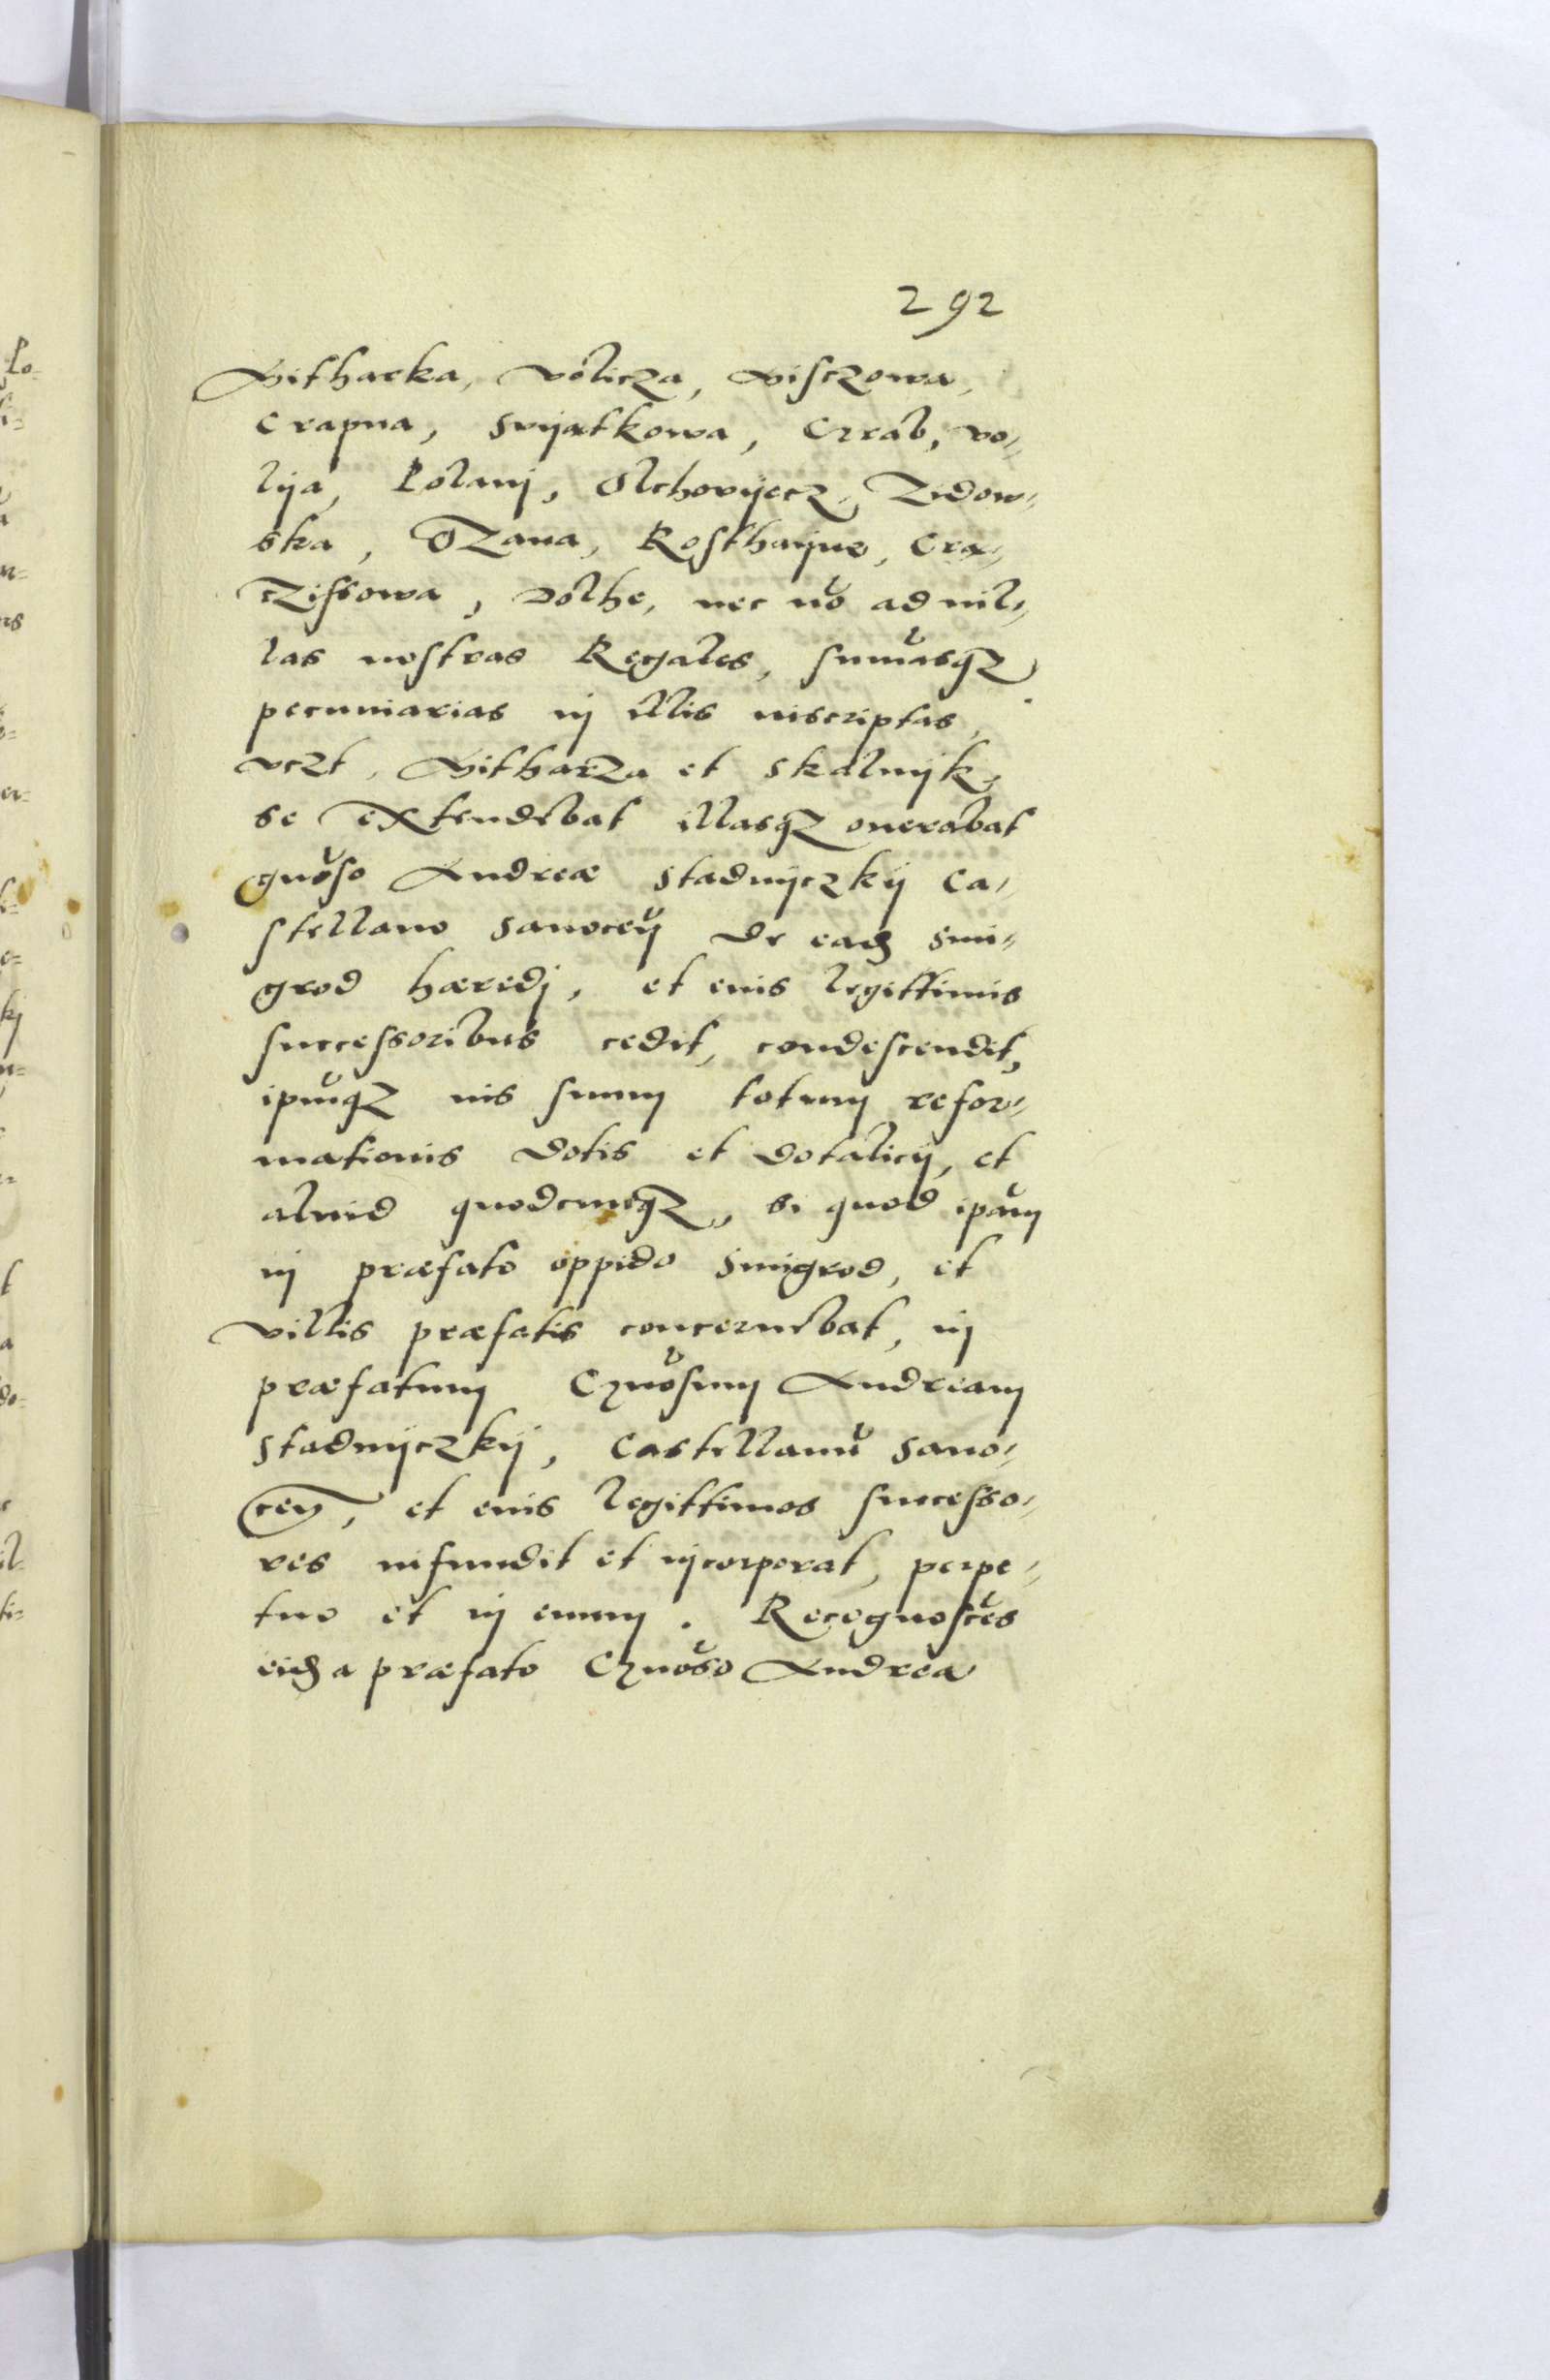 292
Bitharka, Volicza, Bisczowa,
Crapna, Svijatkowa, Grab, vo-
lija, Polanj, Olchovijecz, Zidow-
ska, Ozana, Rosthaijne, Cra-
czissowa, Dolhe, nec nō ad vil-
las nostras Regales, sum̄asq3
pecuniarias in illis inscriptas,
vczt, Bitharza et Skalnijk,
se extendebat illasq3 onerabat
gnōso Andreæ Stadnijczkij Ca-
stellano Sanocen̄ de eadē Smi-
grod hæredj, et eius legittimis
successoribus cedit, condescendit,
ipūq3 ius suum totum refor-
mationis dotis et dotalicij, et
aliud quodcunq3, si quod ipām
in præfato oppido Smigrod, et
villis præfatis concernebat, in
præfatum Gnōsum Andream
Stadnijczkij, Castellanū Sano-
cen̄, et eius legittimos successo-
res infundit et incorporat, perpe-
tuo et in euum. Recognoscēs
eidē a præfato Gnōso Andrea